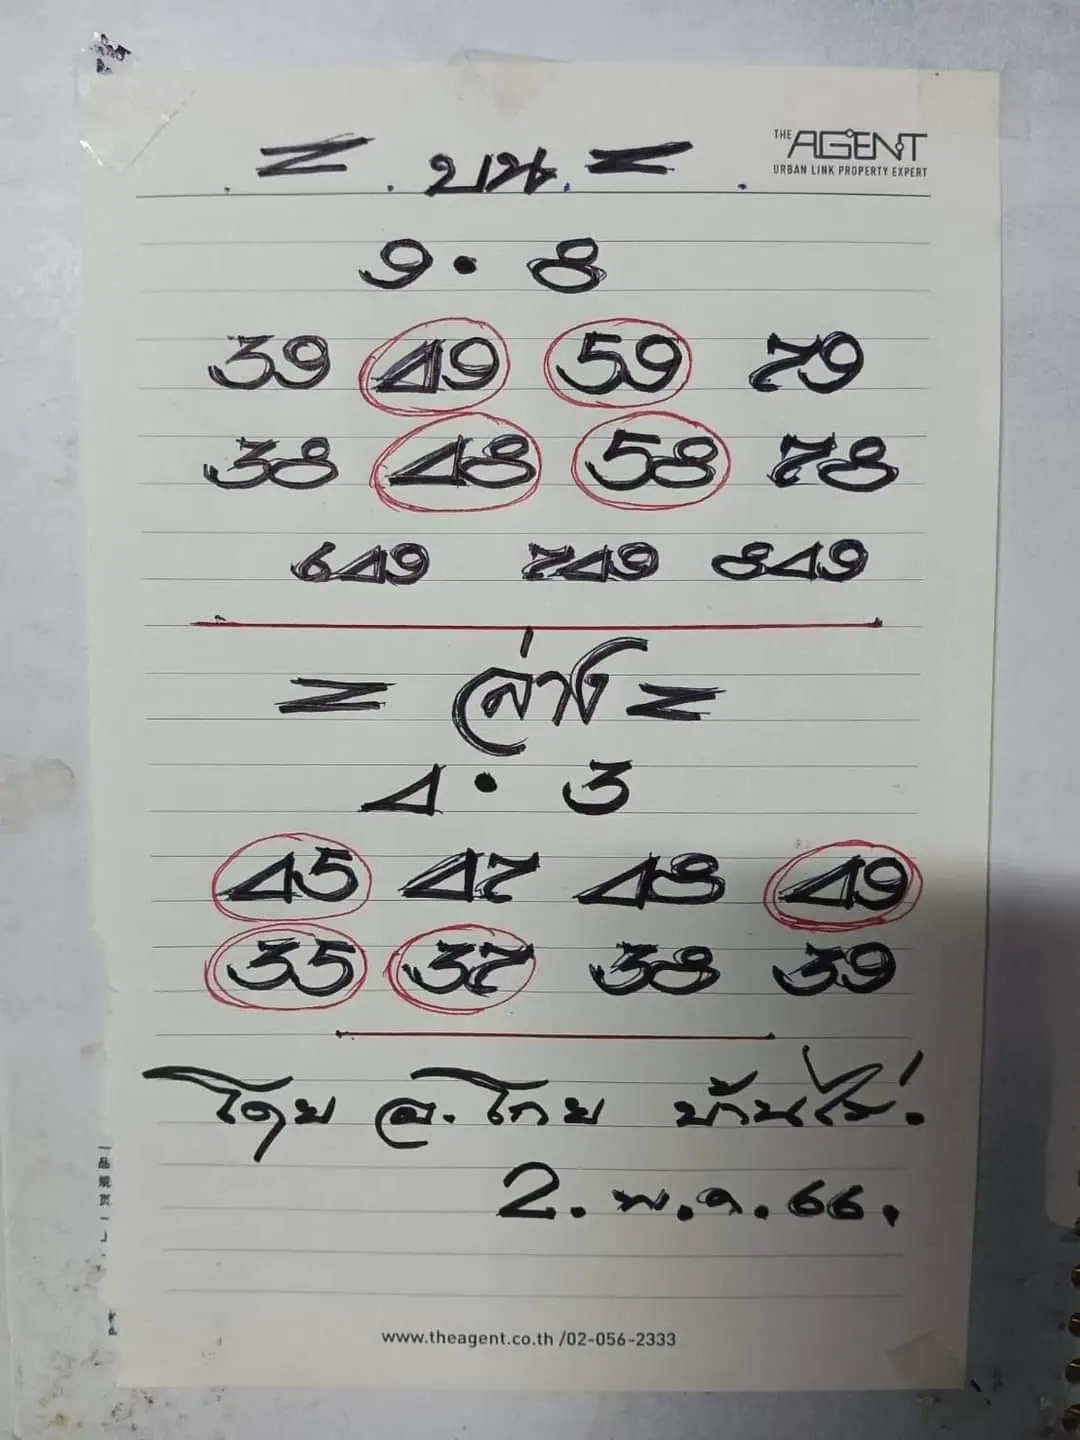 THE AGENT
URBAN LINK PROPERTY EXPERT
= บน =
9 . 8
39 49 59 79
38 48 58 78
649 749 849
= ล่าง =
4 . 3
45 47 48 49
35 37 38 39
โดย อ.โกย บ้านไร่.
2. พ.ค. 66.
www.theagent.co.th /02-056-2333